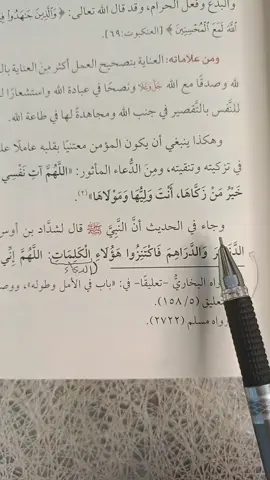 والبدع وفعل الحرام، وقد قال الله تعالى: ﴿وَالَّذِينَ جَاهَدُوا
اللَّهَ لَمَعَ الْمُحْسِنِينَ﴾ [العنكبوت: ٦٩].
ومن علاماته: العناية بتصحيح العمل أكثر من العناية
لله وصدقًا مع الله ﷻ ونصحًا في عبادة الله واستشعارًا
للنَّفس بالتَّقصير في جنب الله ومجاهدةً لها في طاعة الله.
وهكذا ينبغي أن يكون المؤمن معتنيًا بقلبه عاملًا
في تزكيته وتنقيته، ومِنَ الدُّعاء المأثور: «اللَّهُمَّ آتِ نَفْسِي
خَيْرُ مَنْ زَكَّاهَا، أَنْتَ وَلِيُّهَا وَمَوْلَاهَا»(٢).
وجاء في الحديث أنَّ النَّبِيَّ ﷺ قال لشدَّاد بن أوس
وَالدَّرَاهِمَ فَاكْتَنِزُوا هَؤُلَاءِ الْكَلِمَاتِ: اللَّهُمَّ إِنِّي
البخاريُّ -تعليقًا- في: «باب في الأمل وطوله»،
(٥/ ١٥٨).
مسلم (٢٧٢٢).